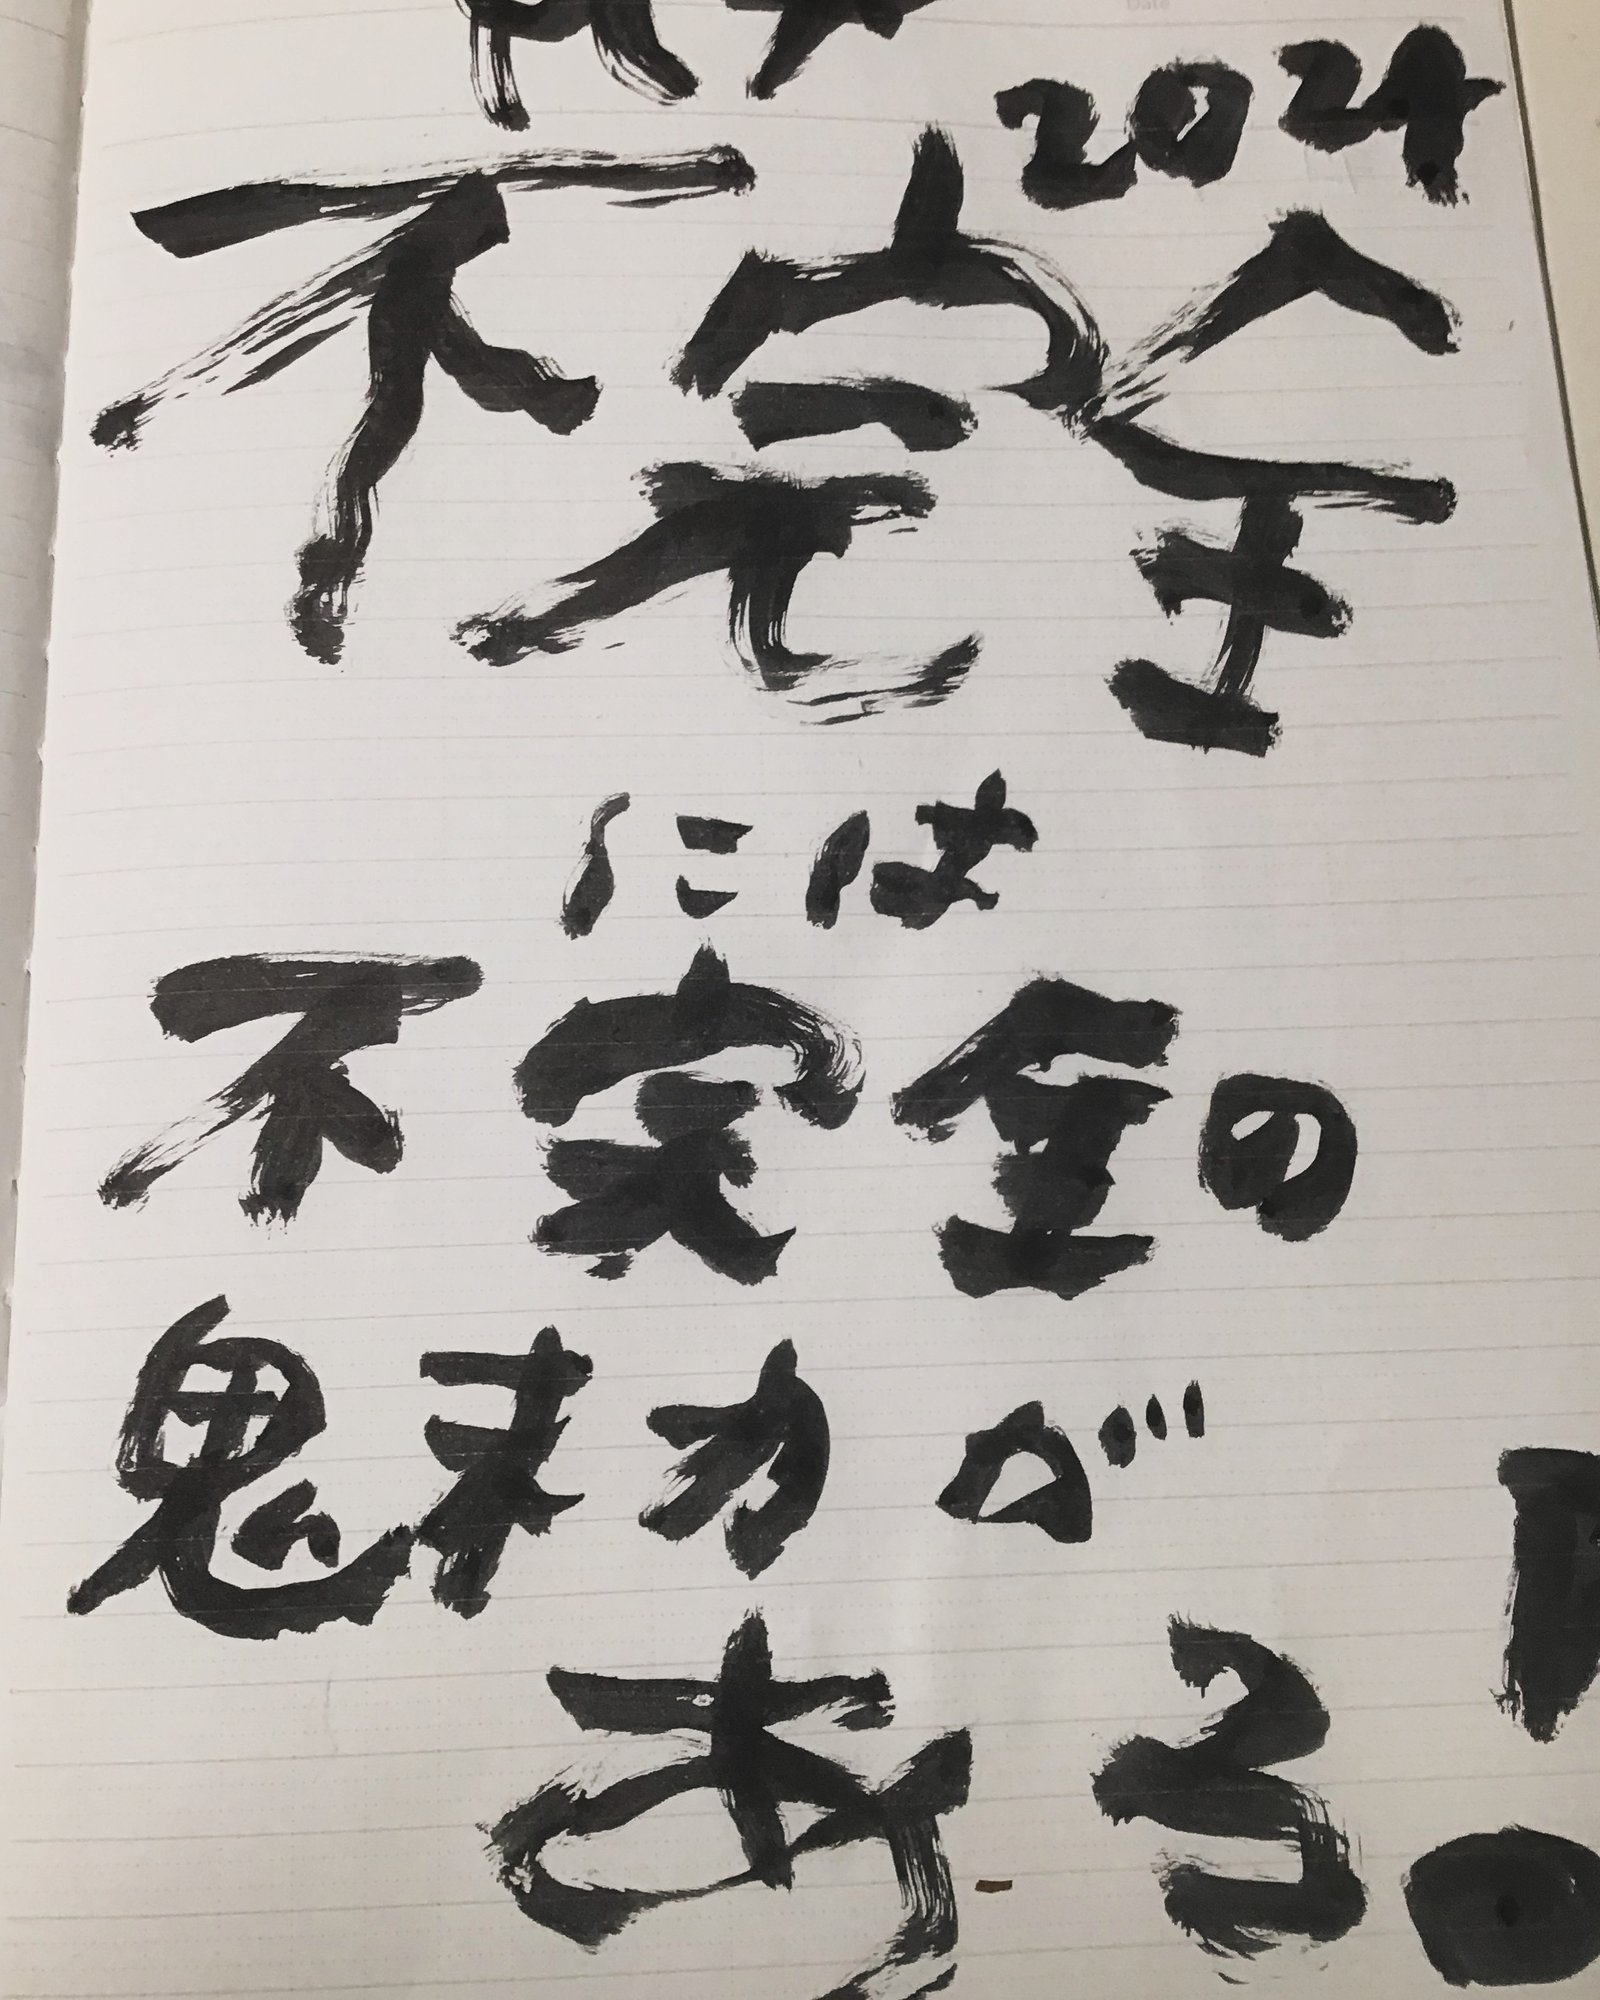 2024
不完全
には
不完全の
魅力が
ある!